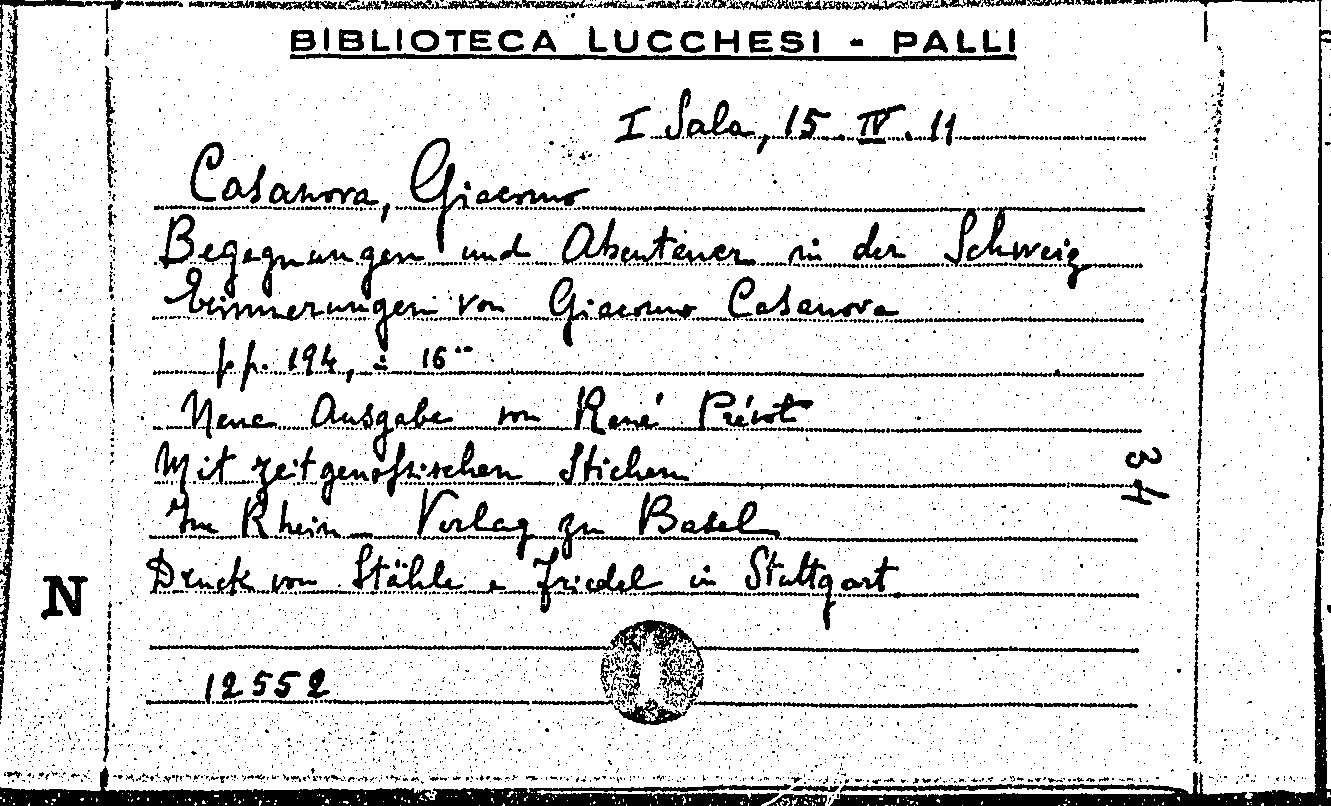 BIBLIOTECA LUCCHESI - PALLI
I Sala, 15. IV. 11
Casanova, Giacomo
Begegnungen und Abenteuer in der Schweiz
Erinnerungen von Giacomo Casanova
pp. 194, in 16°
Neue Ausgabe von René Prévot
Mit zeitgenössischen Stichen
Im Rhein-Verlag zu Basel
Druck von Stähle e Friedel in Stuttgart
34
N
12552